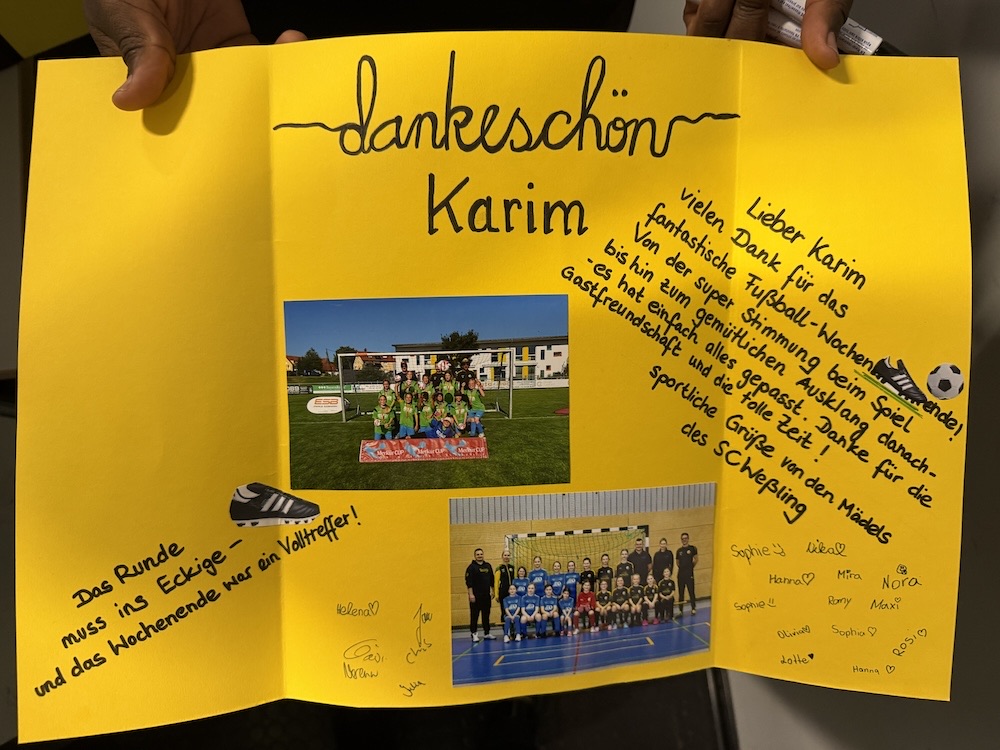 dankeschön
Karim
Lieber Karim
vielen Dank für das
fantastische Fußball-Wochenende!
Von der super Stimmung beim Spiel
bis hin zum gemütlichen Ausklang danach-
-es hat einfach alles gepasst. Danke für die
Gastfreundschaft und die tolle Zeit!
sportliche Grüße von den Mädels
des SCWeßling
Das Runde
muss ins Eckige -
und das Wochenende war ein Volltreffer!
Merkur CUP Merkur CUP Merkur CUP
Helena
Chris
Julia
Sophie
Hanna Mira Nora
Sophie Romy Maxi
Olivia Sophia Rosi
Lotte Hanna